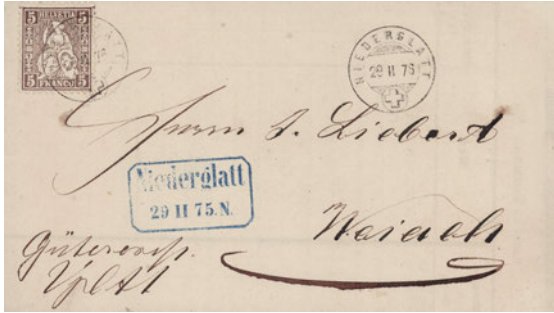 5 HELVETIA 5
5 FRANCO 5
NIEDERGLATT
29 II 76
Herrn J. Liebert
Niederglatt
29 II 75.N.
Weiach